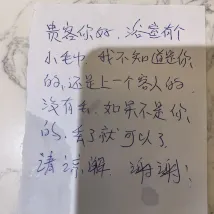 贵客你好，浴室有个
小毛巾，我不知道是你
的，还是上一个客人的
没有丢，如果不是你
的，丢了就可以了
请谅解 谢谢！